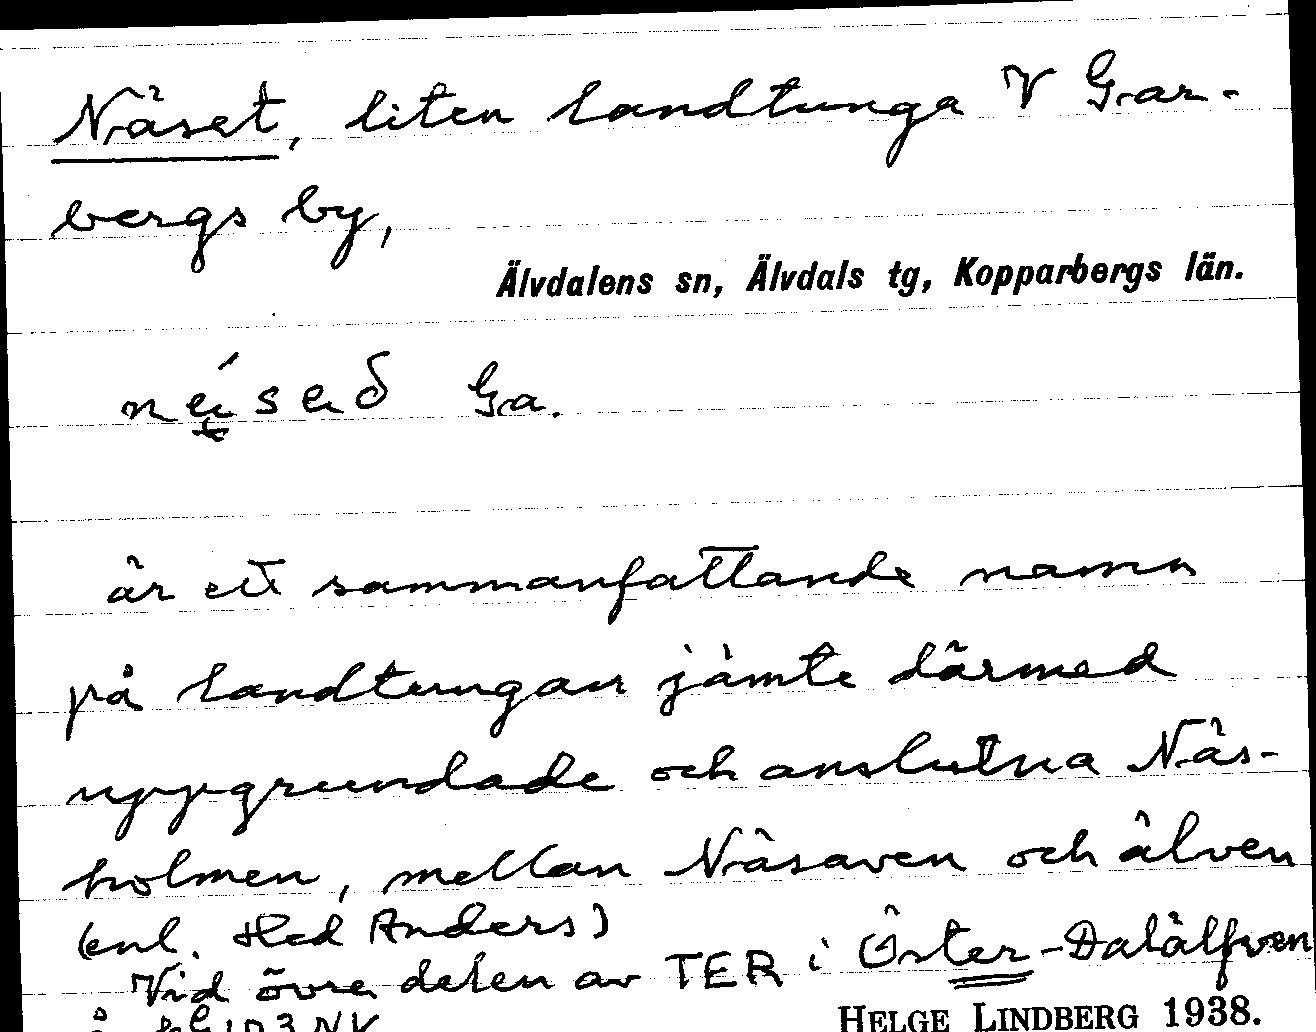 Näset, liten landtunga V Gar-
bergs by,
Älvdalens sn, Älvdals tg, Kopparbergs län.
Ga.
är ett sammanfattande namn
på landtungan jämte därmed
uppgrundade och anslutna Näs-
holmen, mellan Näsaven och älven
(enl. Hed Anders)
Vid övre delen av TER i Öster-Dalälfven
HELGE LINDBERG 1938.